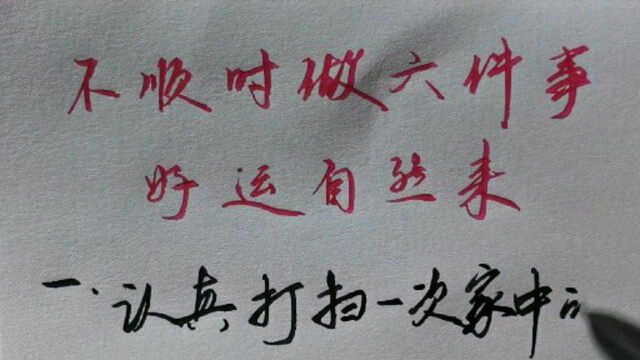 不顺时做六件事
好运自然来
一.认真打扫一次家中